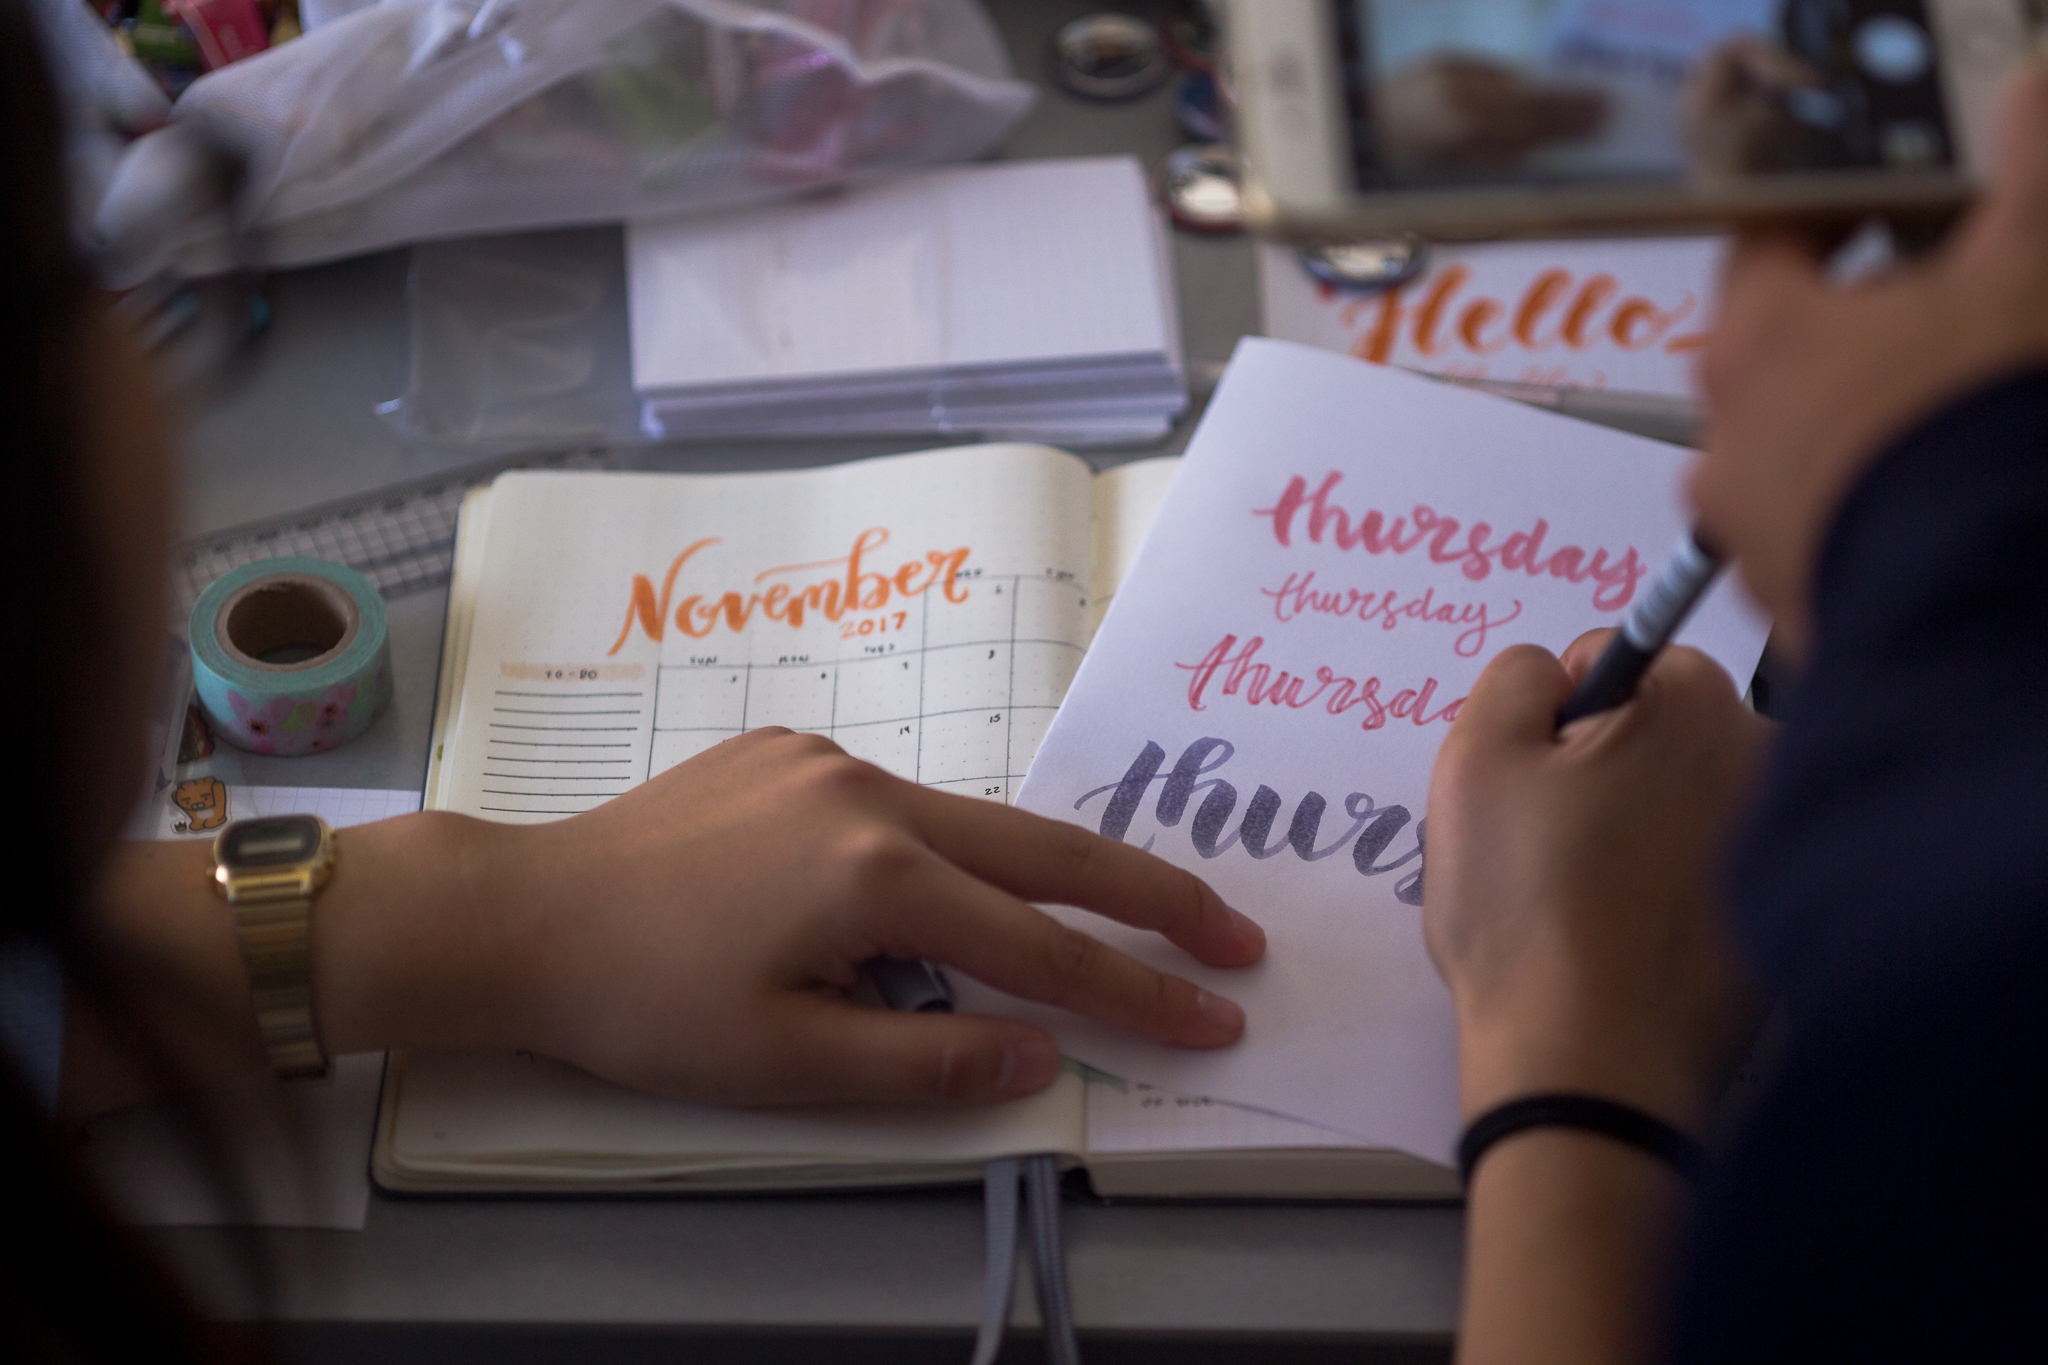 Hello
November
2017
TO-DO
SUN MON TUES WED THU
1
5 6 7 8
14 15
22
thursday
thursday
thursda
thurs